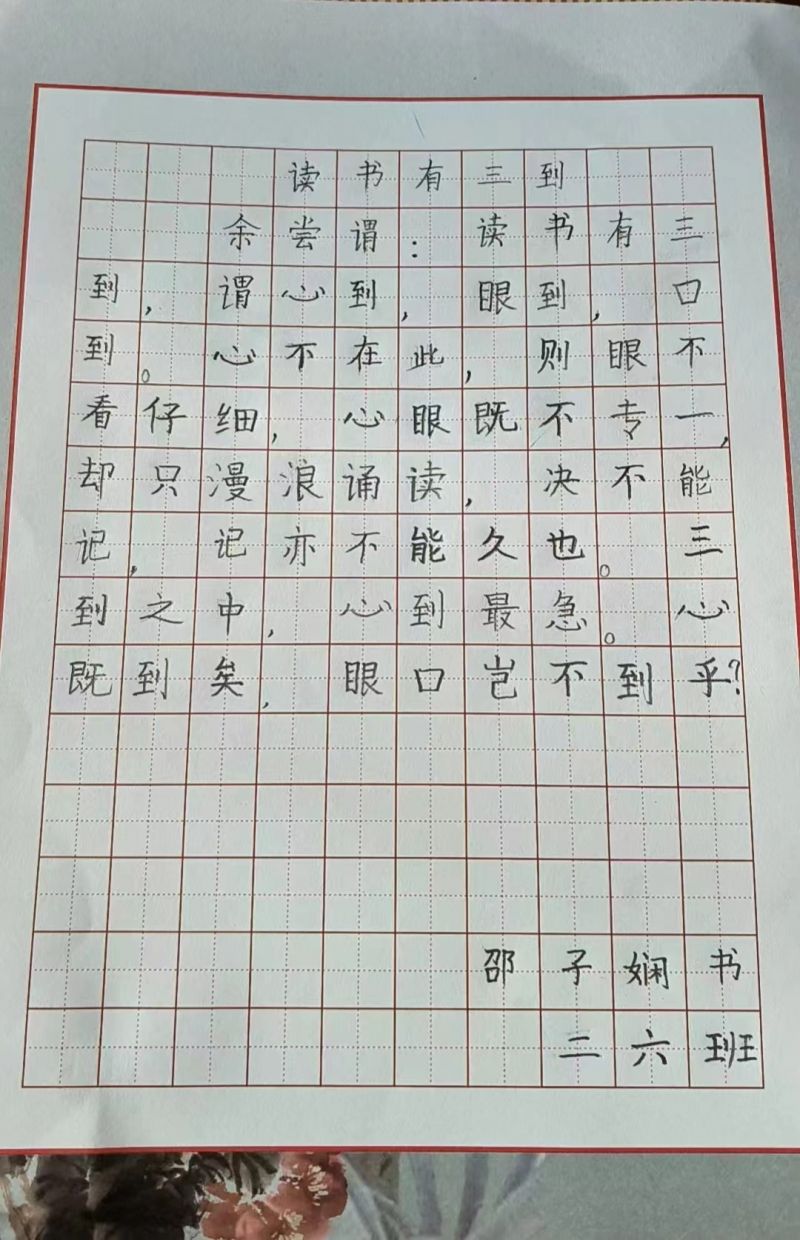 读书有三到
余尝谓：读书有三
到，谓心到，眼到，口
到。心不在此，则眼不
看仔细，心眼既不专一，
却只漫浪诵读，决不能
记，记亦不能久也。三
到之中，心到最急。心
既到矣，眼口岂不到乎？
邵子娴书
二六班